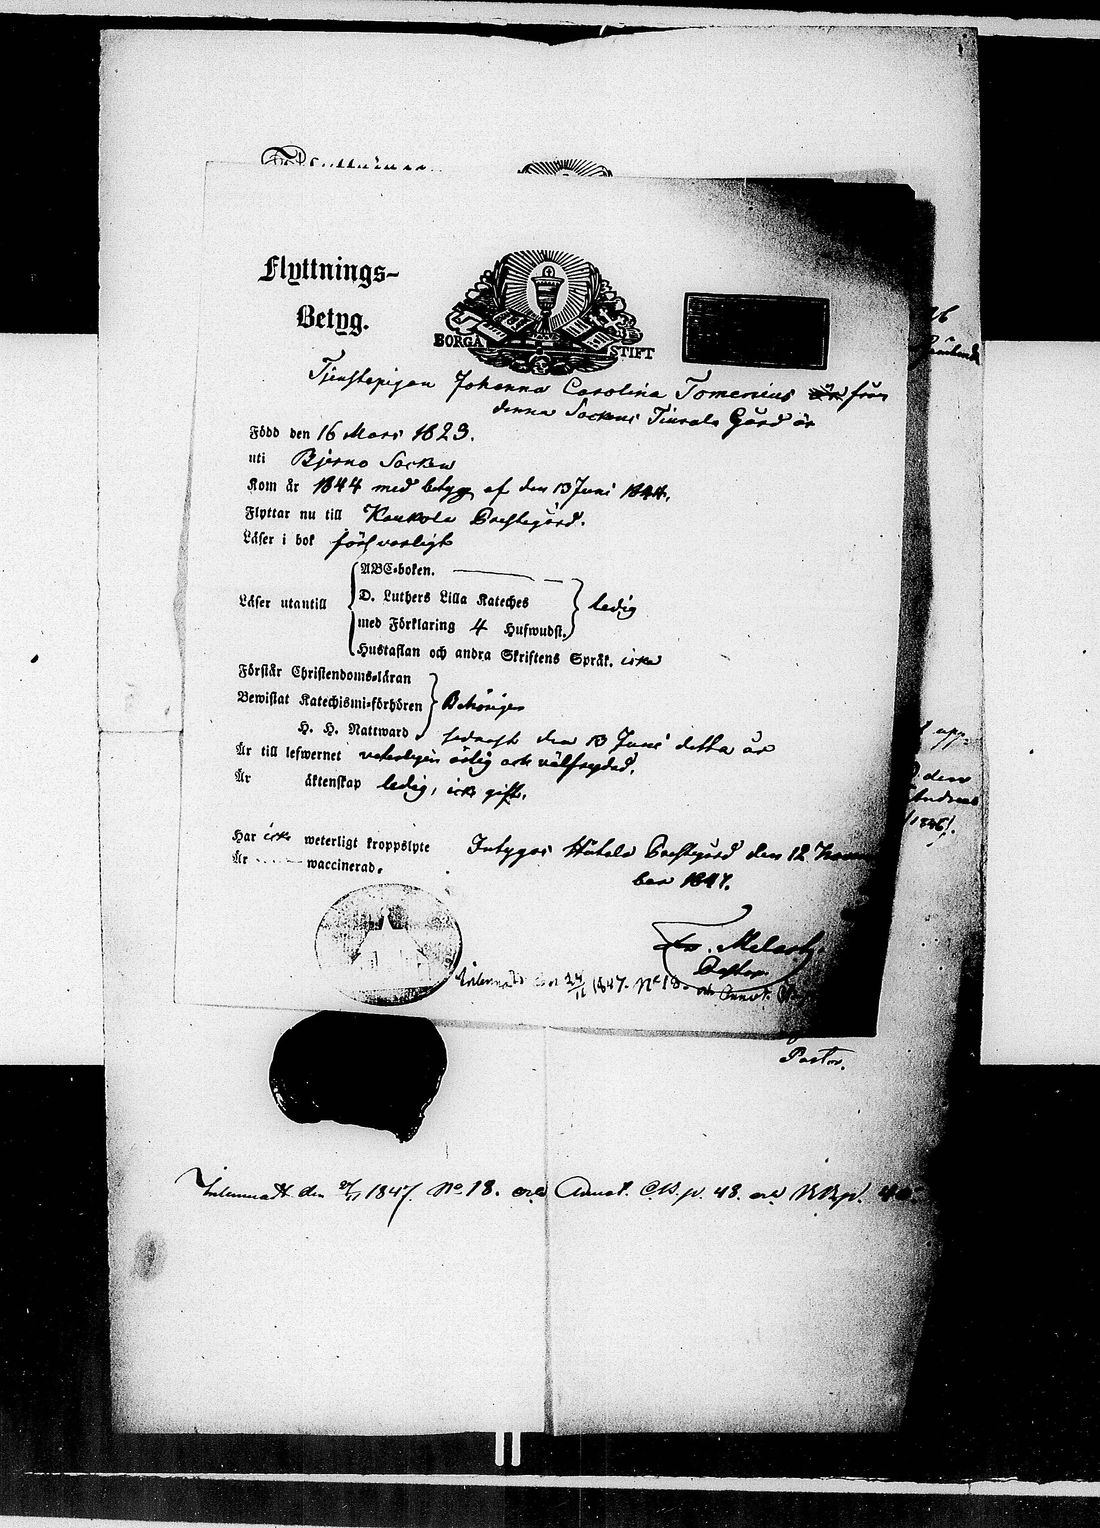 Flyttnings-
Betyg.
BORGÅ STIFT
Tjenstepigan Johanna Carolina Tomenius från
denna Sockens Tiurala Gård är
Född den 16 Mars 1823.
uti Bjerno Socken
Kom år 1844 med betyg af den 13 Juni 1844.
Flyttar nu till Kaukola Prestegård.
Läser i bok försvarligt
ABC-boken.
Läser utantill D. Luthers Lilla Kateches
med Förklaring 4 Hufwudst. ledig
Hustaflan och andra Skriftens Språk. icke
Förstår Christendoms-läran
Bewistat Katechismi-förhören Behörigen
H. H. Nattward sednast den 13 Juni detta år
Är till lefwernet veterligen ärlig och välfrejdad.
Är äktenskap ledig, icke gift.
Har icke weterligt kroppslyte
Är waccinerad.
Intygas Hiitola Prestegård den 12 Novem
ber 1847.
Pastor.
Inlemnadt den 27/11 1847. No 18.
och Annot.
Pastor.
Inlemnadt den 27/11 1847. No 18. och Annot. C.B. p. 48. och